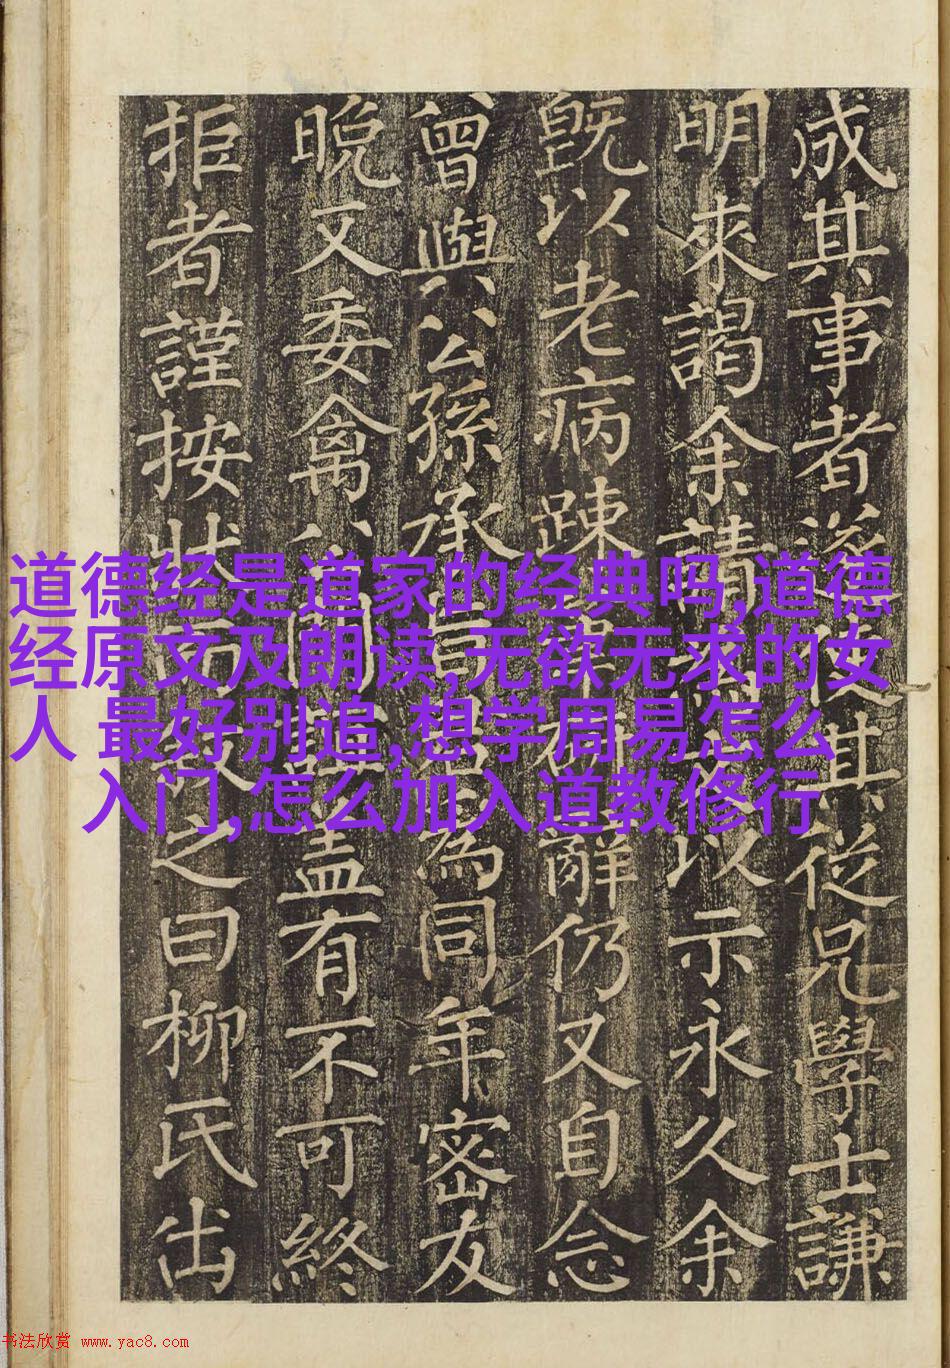 成其事者其從兄學士謙
明來謁余請以示永久余
既以老病踈辭仍又自念
曾與公孫承為同年密友
晚又委禽公門盖有不可終
拒者謹按狀之曰柳氏出
道德经是道家的经典吗,道德
经原文及朗读,无欲无求的女
人 最好别追,想学周易怎么
入门,怎么加入道教修行
书法欣赏 www.yac8.com